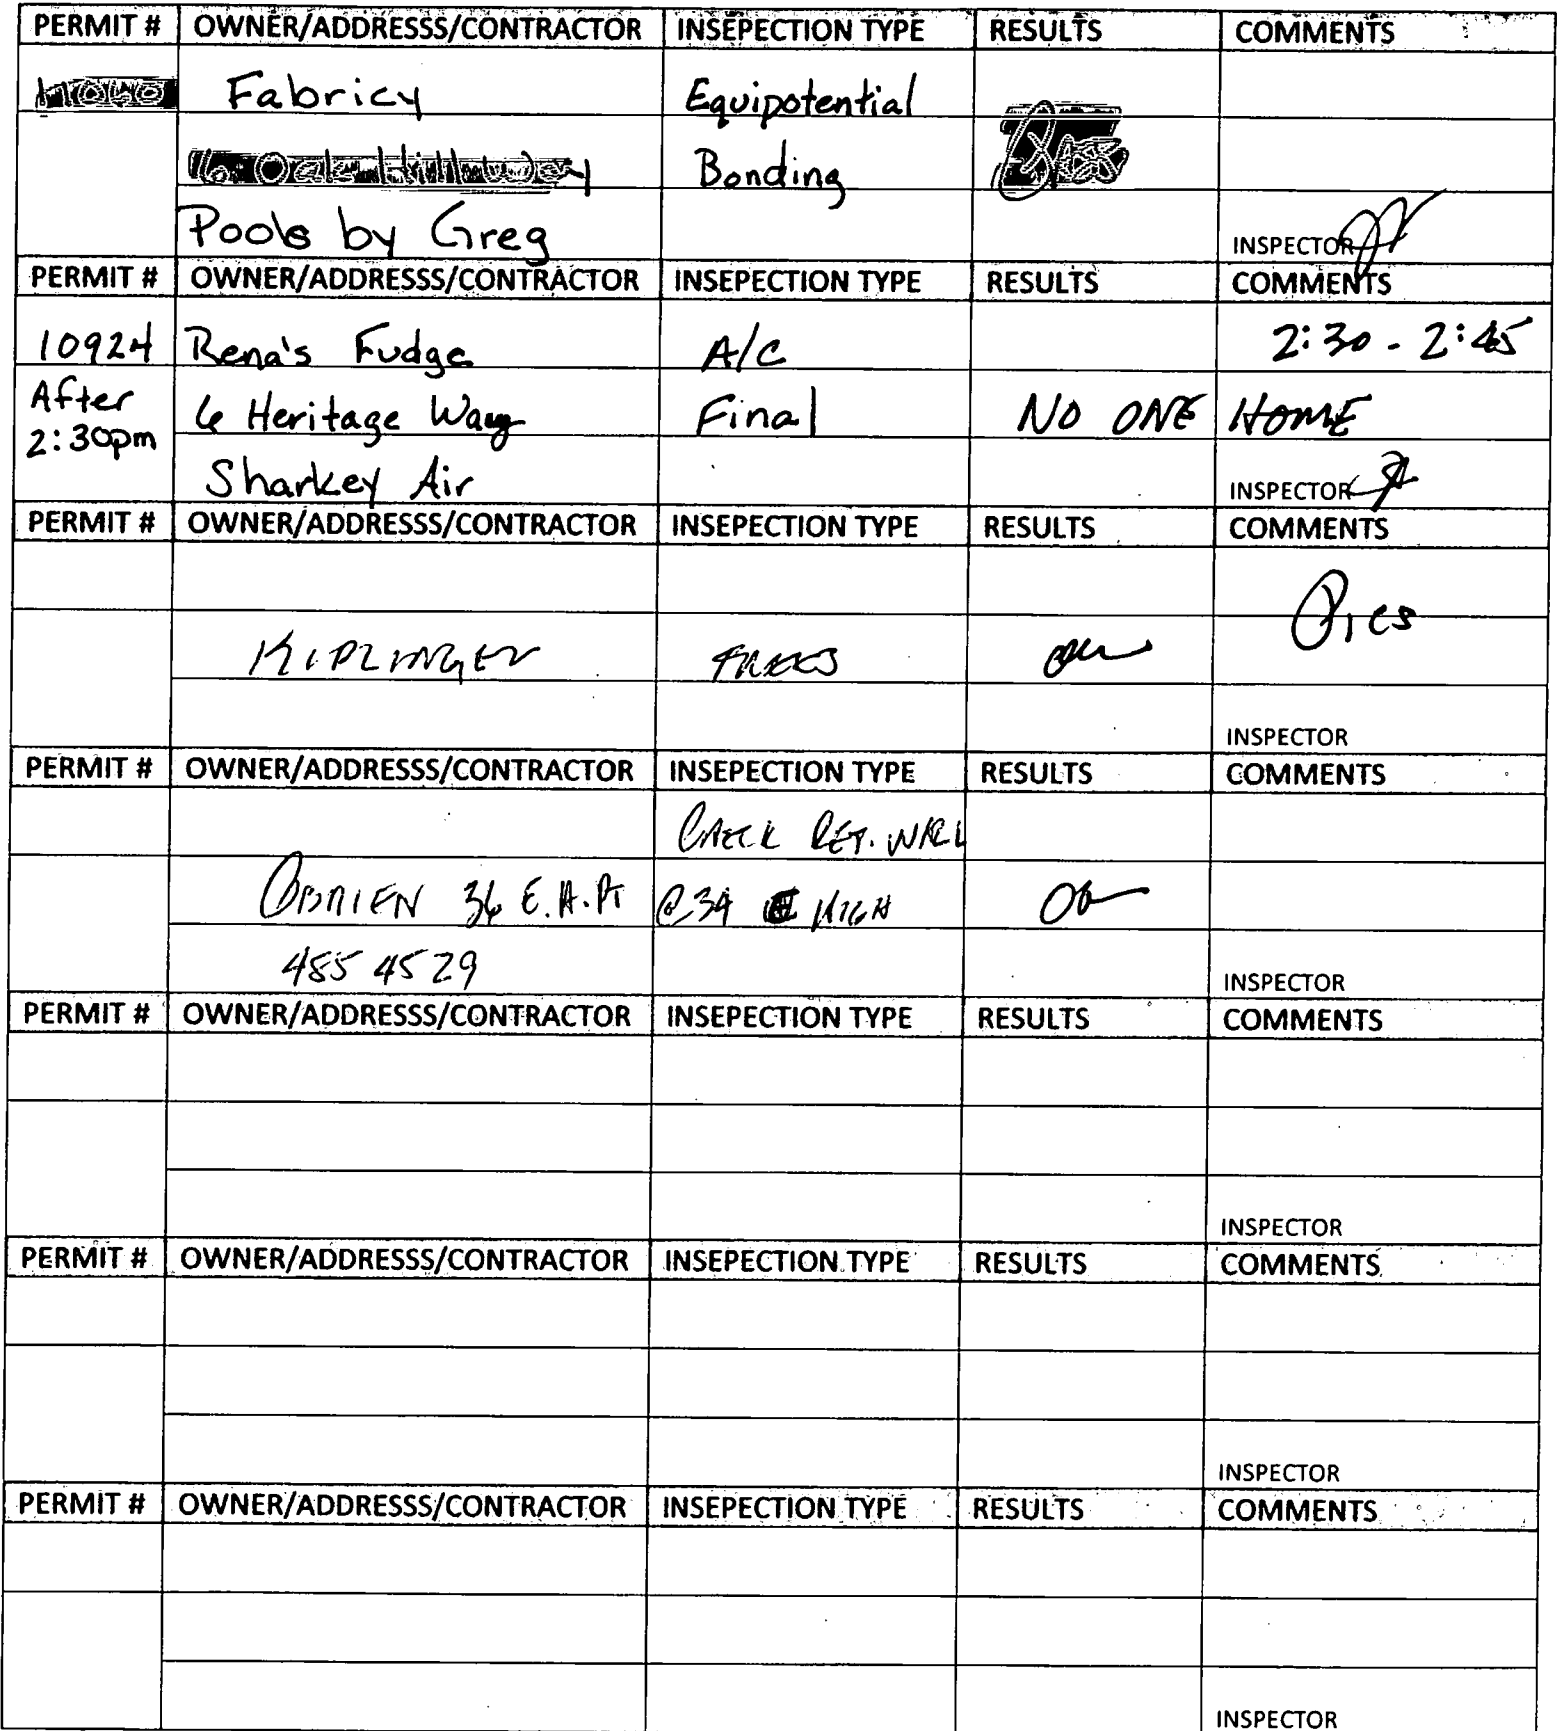 PERMIT # OWNER/ADDRESSS/CONTRACTOR INSEPECTION TYPE RESULTS COMMENTS
Fabricy Equipotential
16 Oak Hill Way Bonding Pass
Pools by Greg INSPECTOR
PERMIT # OWNER/ADDRESSS/CONTRACTOR INSEPECTION TYPE RESULTS COMMENTS
10924 Rena's Fudge A/C 2:30 - 2:45
After 6 Heritage Way Final NO ONE HOME
2:30pm
Sharkey Air INSPECTOR
PERMIT # OWNER/ADDRESSS/CONTRACTOR INSEPECTION TYPE RESULTS COMMENTS
Pics
KIPLINGER TREES
INSPECTOR
PERMIT # OWNER/ADDRESSS/CONTRACTOR INSEPECTION TYPE RESULTS COMMENTS
CHECK RET. WALL
OBRIEN 36 E.H.Pt @34 HIGH OK
485 4529 INSPECTOR
PERMIT # OWNER/ADDRESSS/CONTRACTOR INSEPECTION TYPE RESULTS COMMENTS
INSPECTOR
PERMIT # OWNER/ADDRESSS/CONTRACTOR INSEPECTION TYPE RESULTS COMMENTS
INSPECTOR
PERMIT # OWNER/ADDRESSS/CONTRACTOR INSEPECTION TYPE RESULTS COMMENTS
INSPECTOR